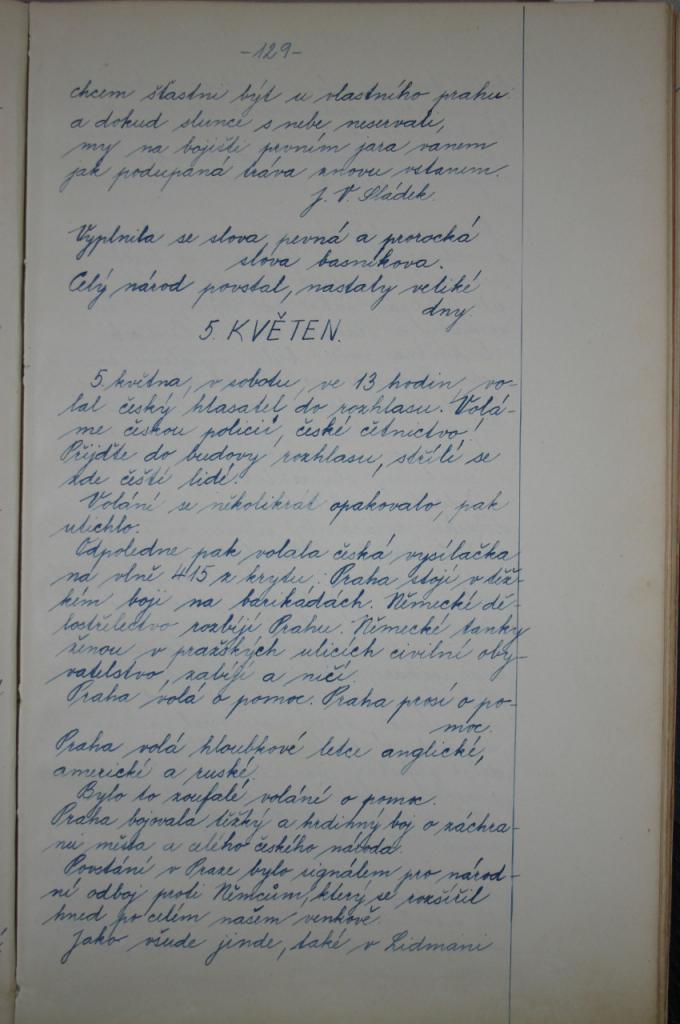 -129-
chcem šťastni být u vlastního prahu
a dokud slunce s nebe neservali,
my na bojišti prvním jara vanem
jak podupaná tráva znovu vstanem.
J. V. Sládek.
Vyplnila se slova, pevná a prorocká
slova básníkova.
Celý národ povstal, nastaly veliké
dny.
5. KVĚTEN.
5. května, v sobotu, ve 13 hodin, vo-
lal český hlasatel do rozhlasu. "Volá-
me českou policii, české četnictvo!
Přijďte do budovy rozhlasu, střílí se
zde čeští lidé."
Volání se několikrát opakovalo, pak
utichlo.
Odpoledne pak volala česká vysílačka
na vlně 415 z krytu: Praha stojí v těž-
kém boji na barikádách. Německé dě-
lostřelectvo rozbíjí Prahu. Německé tanky
ženou v pražských ulicích civilní oby-
vatelstvo, zabíjí a ničí.
Praha volá o pomoc. Praha prosí o po-
moc.
Praha volá hloubkové letce anglické,
americké a ruské.
Bylo to zoufalé volání o pomoc.
Praha bojovala těžký a hrdinný boj o záchra-
nu města a celého českého národa.
Povstání v Praze bylo signálem pro národ-
ní odboj proti Němcům, který se rozšířil
hned po celém našem venkově.
Jako všude jinde, také v Lidmani